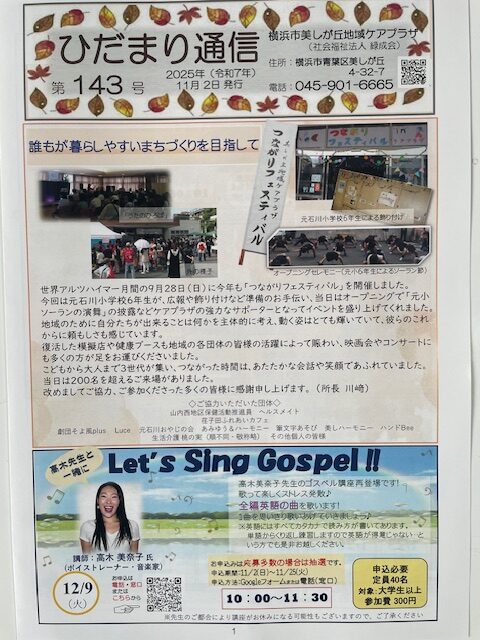 ひだまり通信
第 143 号
2025年(令和7年)
11月 2日 発行
横浜市美しが丘地域ケアプラザ
(社会福祉法人 緑成会)
住所: 横浜市青葉区美しが丘
4-32-7
電話: 045-901-6665
誰もが暮らしやすいまちづくりを目指して
美しが丘地域ケアプラザ
つながりフェスティバル
つながり
フェスティバル
元石川小学校6年生による飾り付け
外の様子
オープニングセレモニー(元小6年生によるソーラン節)
世界アルツハイマー月間の9月28日(日)に今年も「つながりフェスティバル」を開催しました。
今回は元石川小学校6年生が、広報や飾り付けなど準備のお手伝い、当日はオープニングで「元小
ソーランの演舞」の披露などケアプラザの強力なサポーターとなってイベントを盛り上げてくれました。
地域のために自分たちが出来ることは何かを主体的に考え、動く姿はとても輝いていて、彼らのこれ
からに頼もしさも感じています。
復活した模擬店や健康ブースも地域の各団体の皆様の活躍によって賑わい、映画会やコンサートに
も多くの方が足をお運びくださいました。
こどもから大人まで3世代が集い、つながった時間は、あたたかな会話や笑顔であふれていました。
当日は200名を超えるご来場がありました。
改めましてご協力、ご参加くださった多くの皆様に感謝申し上げます。 (所長 川﨑)
◇ご協力いただいた団体◇
山内西地区保健活動推進員 ヘルスメイト
荏子田ふれあいカフェ
劇団そよ風plus Luce 元石川おやじの会 あみゆう&ハーモニー 筆文字あそび 美しハーモニー ハンドBee
生活介護 桃の実 (順不同・敬称略) その他個人の皆様
高木先生と
一緒に
Let's Sing Gospel !!
高木美奈子先生のゴスペル講座再登場です!
歌って楽しくストレス発散♪
全編英語の曲を歌います!
1曲を思いきり歌いあげていきましょう♪
※英語にはすべてカタカナで読み方が書いてあります。
単語からくり返し練習しますので英語が得意じゃない…と
いう方でも是非お越しください。
講師・高木 美奈子 氏
(ボイストレーナー・音楽家)
12/9
(火)
お申込は
電話・窓口
または
こちらから
お申込みは応募多数の場合は抽選です。
申込期間:11/2(日)~11/25(火)
申込方法:Googleフォームまたは電話(窓口)
10:00~11:30
申込必要
定員40名
対象:大学生以上
参加費 300円
※先生のご都合により講座がお休みになる可能性もございますので、ご了承ください
1